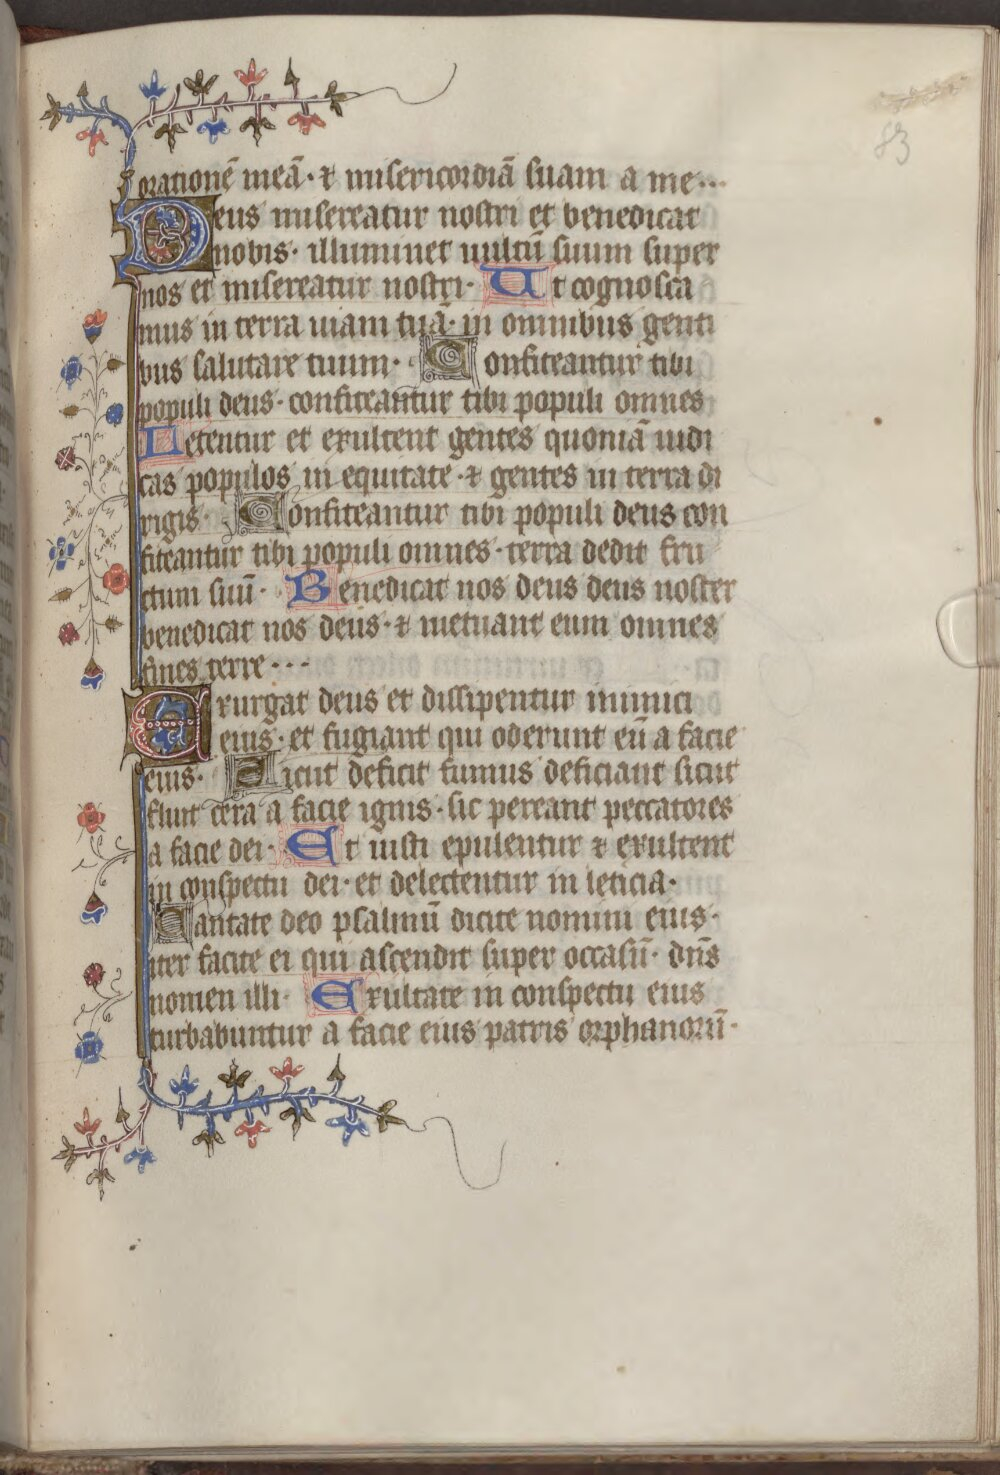 83
orationē meā· ⁊ misericordiā suam a me···
Deus misereatur nostri et benedicat
nobis· illuminet uultū suum super
nos et misereatur nostri· Ut cognosca
mus in terra uiam tuā· in omnibus genti
bus salutare tuum· Confiteantur tibi
populi deus· confiteantur tibi populi omnes
Letentur et exultent gentes quoniā iudi
cas populos in equitate· ⁊ gentes in terra di
rigis· Confiteantur tibi populi deus con
fiteantur tibi populi omnes· terra dedit fru
ctum suū· Benedicat nos deus deus noster
benedicat nos deus· ⁊ metuant eum omnes
fines terre···
Exurgat deus et dissipentur inimici
eius· et fugiant qui oderunt eū a facie
eius· Sicut deficit fumus deficiant sicut
fluit cera a facie ignis· sic pereant peccatores
a facie dei· Et iusti epulentur ⁊ exultent
in conspectu dei· et delectentur in leticia·
Cantate deo psalmū dicite nomini eius·
iter facite ei qui ascendit super occasū· dn̄s
nomen illi· Exultate in conspectu eius
turbabuntur a facie eius patris orphanorū·